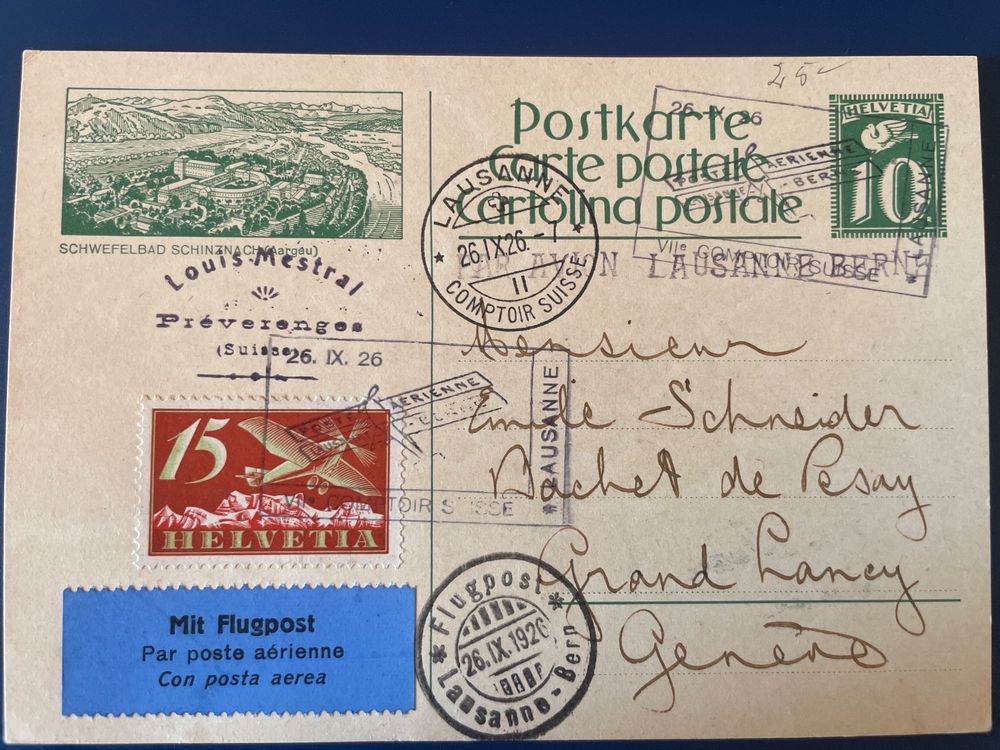 25
SCHWEFELBAD SCHINZNACH (Aargau)
Postkarte
Carte postale
Cartolina postale
HELVETIA
10
26. IX. 26
POSTE AÉRIENNE
LAUSANNE - BERNE
VIIe COMPTOIR SUISSE
* LAUSANNE
LAUSANNE
26.IX.26.-7
II
* COMPTOIR SUISSE *
PAR AVION LAUSANNE BERNE
Louis Mestral
Préverenges
(Suisse)
26. IX. 26
POSTE AÉRIENNE
VIIe COMPTOIR SUISSE
* LAUSANNE
Monsieur
Emile Schneider
Rachet de Pesay
Grand Lancy
Genève
15
HELVETIA
Mit Flugpost
Par poste aérienne
Con posta aerea
* Flugpost *
26.IX.1926
Lausanne - Bern